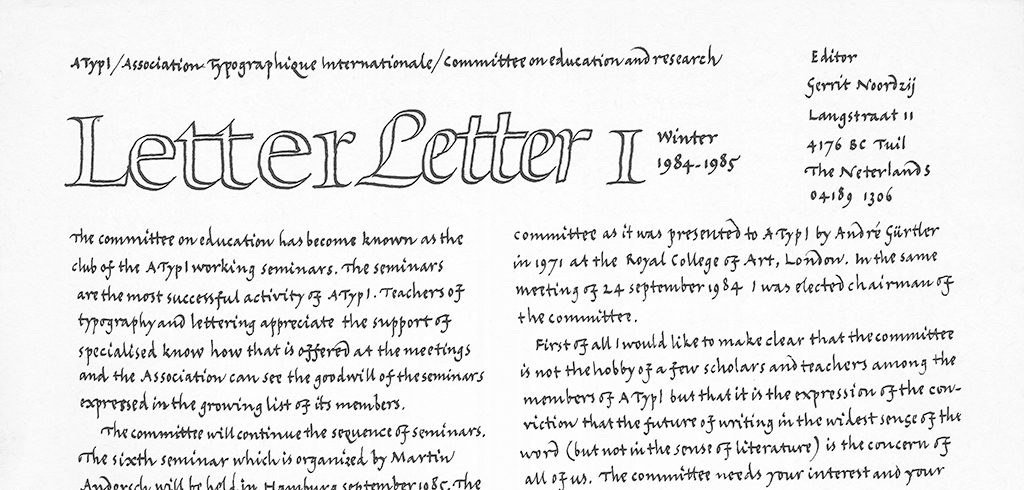 ATypI/Association Typographique Internationale/Committee on education and research
Letter Letter 1
Winter
1984-1985
Editor
Gerrit Noordzij
Langstraat 11
4176 BC Tuil
The Neterlands
04189 1306
The committee on education has become known as the
club of the ATypI working seminars. The seminars
are the most successful activity of ATypI. Teachers of
typography and lettering appreciate the support of
specialised know how that is offered at the meetings
and the Association can see the goodwill of the seminars
expressed in the growing list of its members.
The committee will continue the sequence of seminars.
The sixth seminar which is organized by Martin
Andersch will be held in Hamburg september 1985. The
committee as it was presented to ATypI by André Gürtler
in 1971 at the Royal College of Art, London. In the same
meeting of 24 september 1984 I was elected chairman of
the committee.
First of all I would like to make clear that the committee
is not the hobby of a few scholars and teachers among the
members of ATypI but that it is the expression of the con-
viction that the future of writing in the widest sense of the
word (but not in the sense of literature) is the concern of
all of us. The committee needs your interest and your